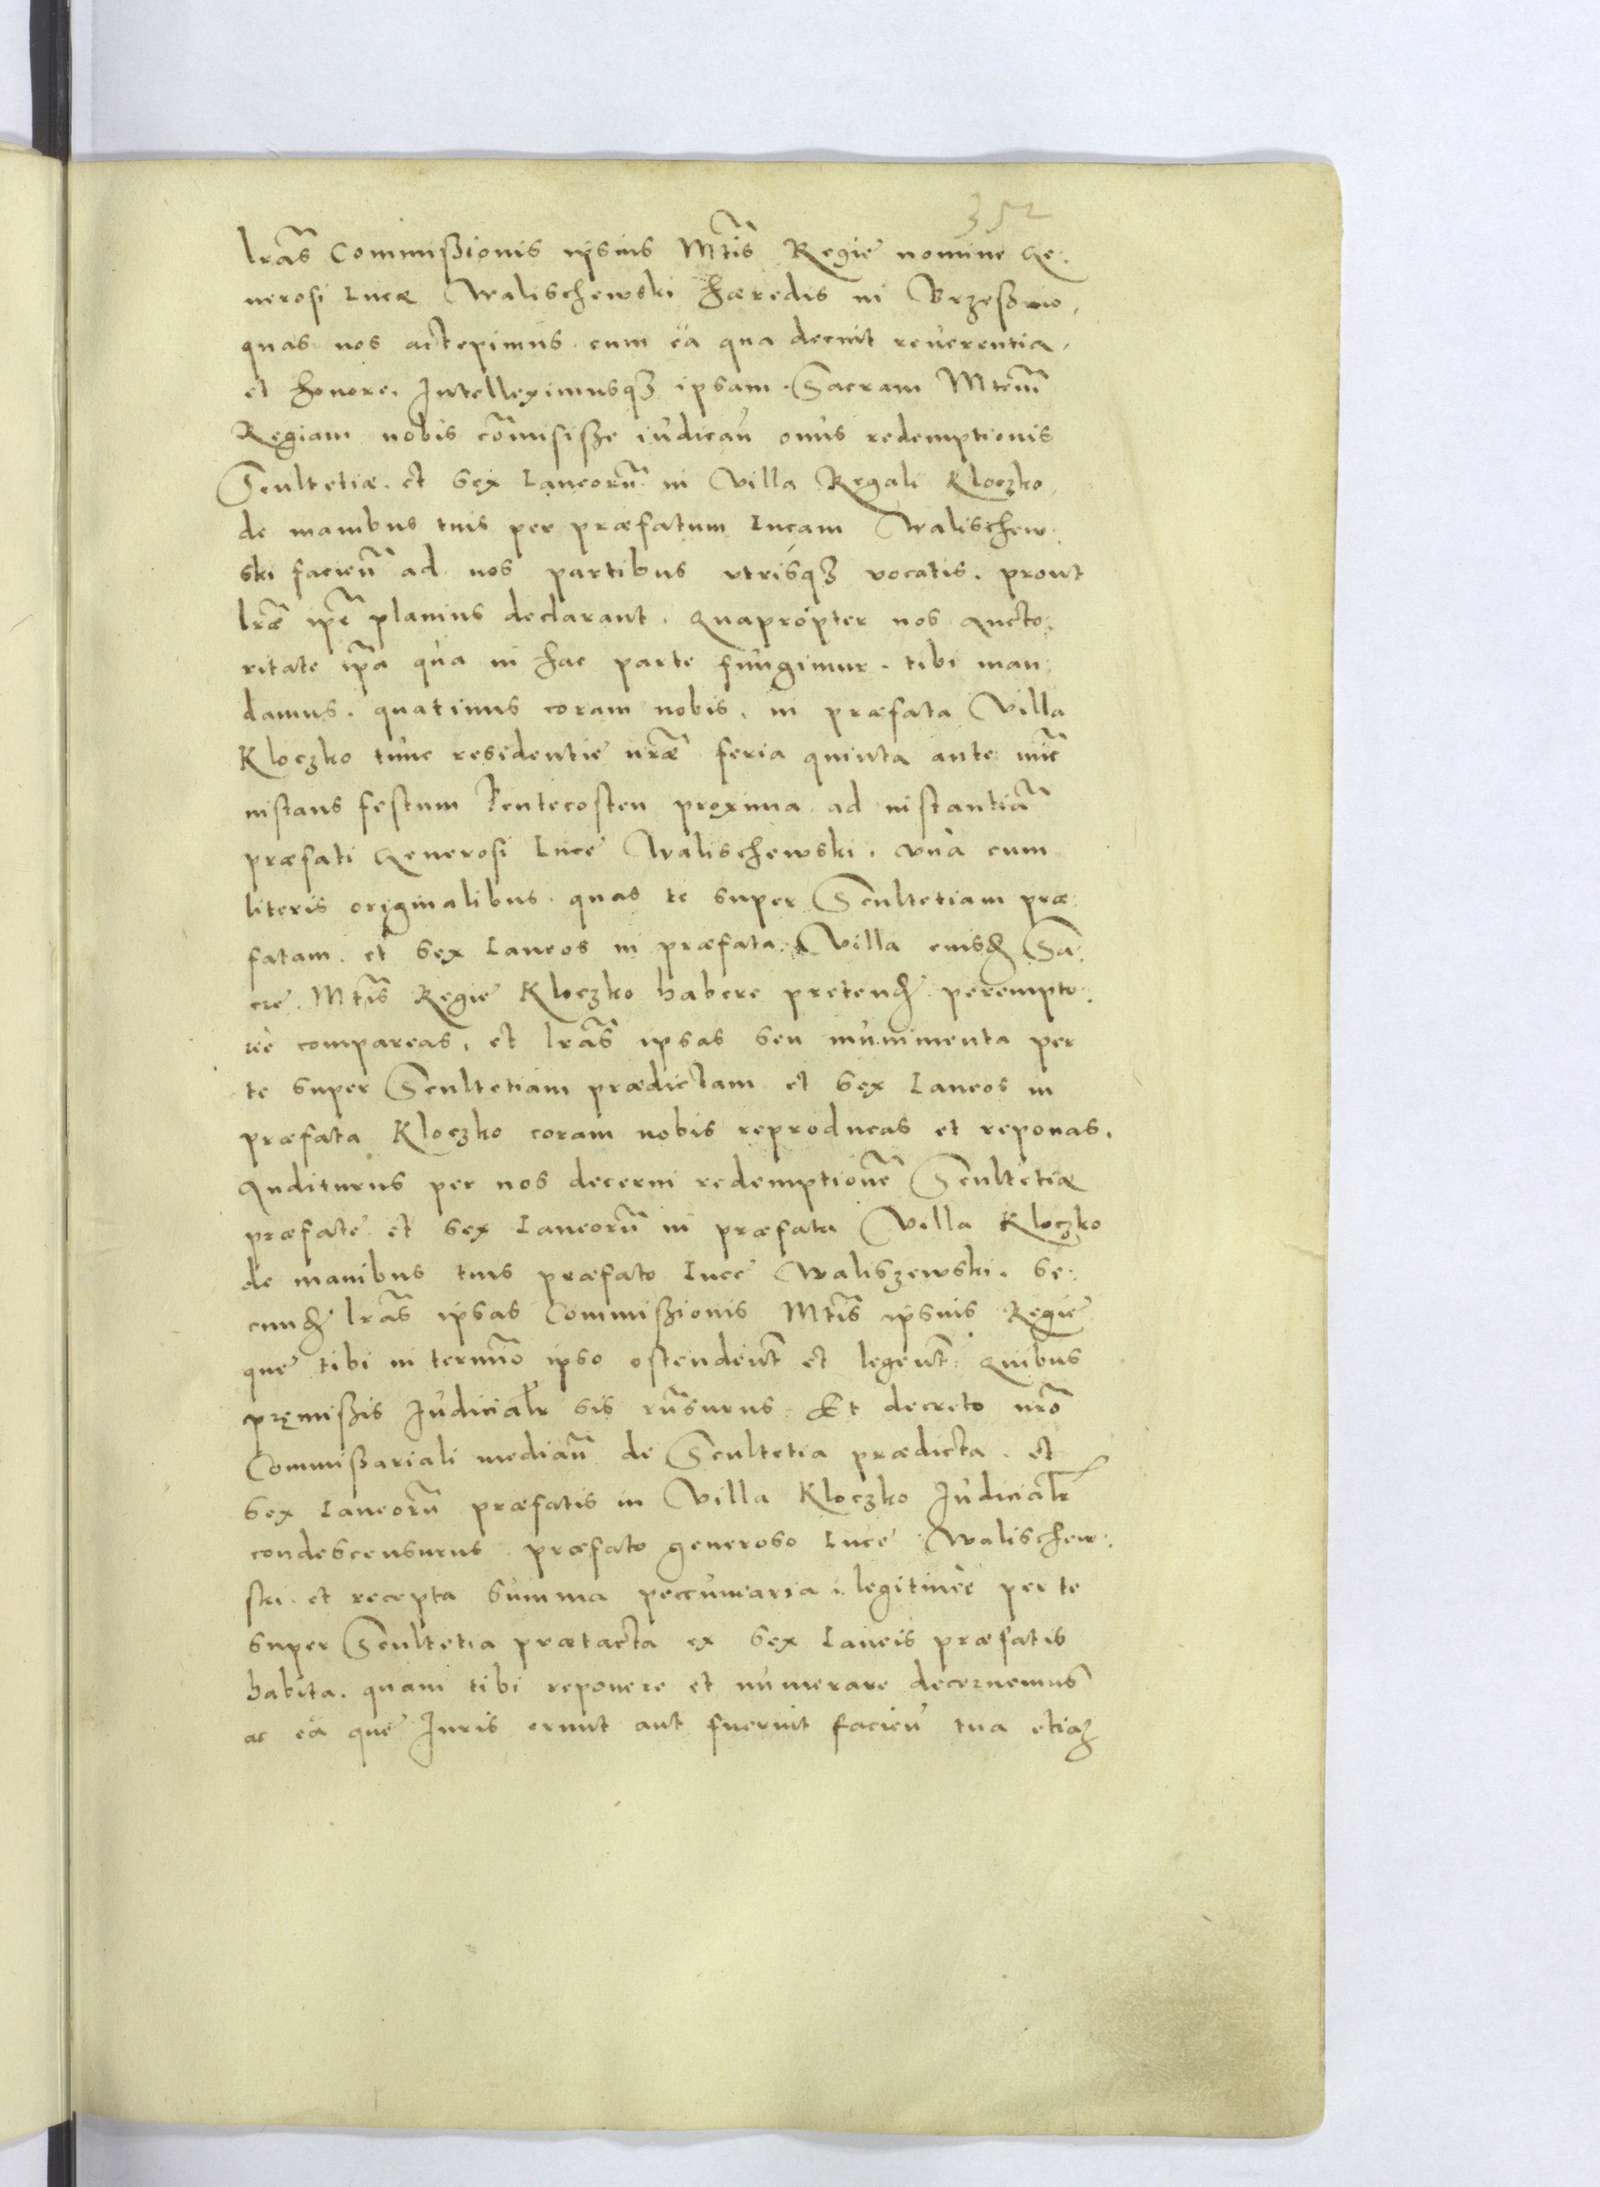 352
lras Commißionis ipsius Mtis Regie nomine Ge-
nerosi Lucæ Walischewski hæredis in Brzeßno,
quas nos accepimus cum ea qua decuit reverentia,
et honore. Intelleximusqʒ ipsam Sacram Mtem
Regiam nobis comisiße iudican onus redemptionis
Scultetiæ et sex Laneoru in Villa Regali Kloczko
de manibus tuis per præfatum Lucam Walischew-
ski facien ad nos partibus vtrisqʒ vocatis. prout
lræ ipe planius declarant. Quapropter nos Aucto-
ritate ipa qua in hac parte fungimur. tibi man-
damus. quatinus coram nobis. in præfata Villa
Kloczko tunc residentie nræ feria quinta ante nuc
instans festum Pentecosten proxima ad instantia
præfati Generosi Luce Walischewski. vna cum
literis originalibus. quas te super Scultetiam præ-
fatam. et sex Laneos in præfata Villa eiusd Sa-
cre Mtis Regie Kloczko habere pretend. perempto-
rie compareas, et lras ipsas seu munimenta per
te super Scultetiam prædictam et sex Laneos in
præfata Kloczko coram nobis reproducas et reponas.
Auditurus per nos decerni redemptione Scultetiæ
præfate et sex Laneoru in præfata Villa Kloczko
de manibus tuis præfato Luce Waliszewski. se-
cund lras ipsas Commißionis Mtis ipsius Regie
que tibi in termio ipso ostendent et legent. Quibus
pręmißis Judicialr sis rnsurus. Et decreto nro
Commißariali median de Scultetia prædicta. et
sex Laneoru præfatis in Villa Kloczko Judicialr
condescensurus præfato generoso Luce Walischew-
ski. et recepta summa peccuniaria. legitime per te
super Scultetia prætacta ex sex Laneis præfatis
habita. quam tibi reponere et numerare decernemus
ac ea que Juris erunt aut fuerint facien tua etiaʒ